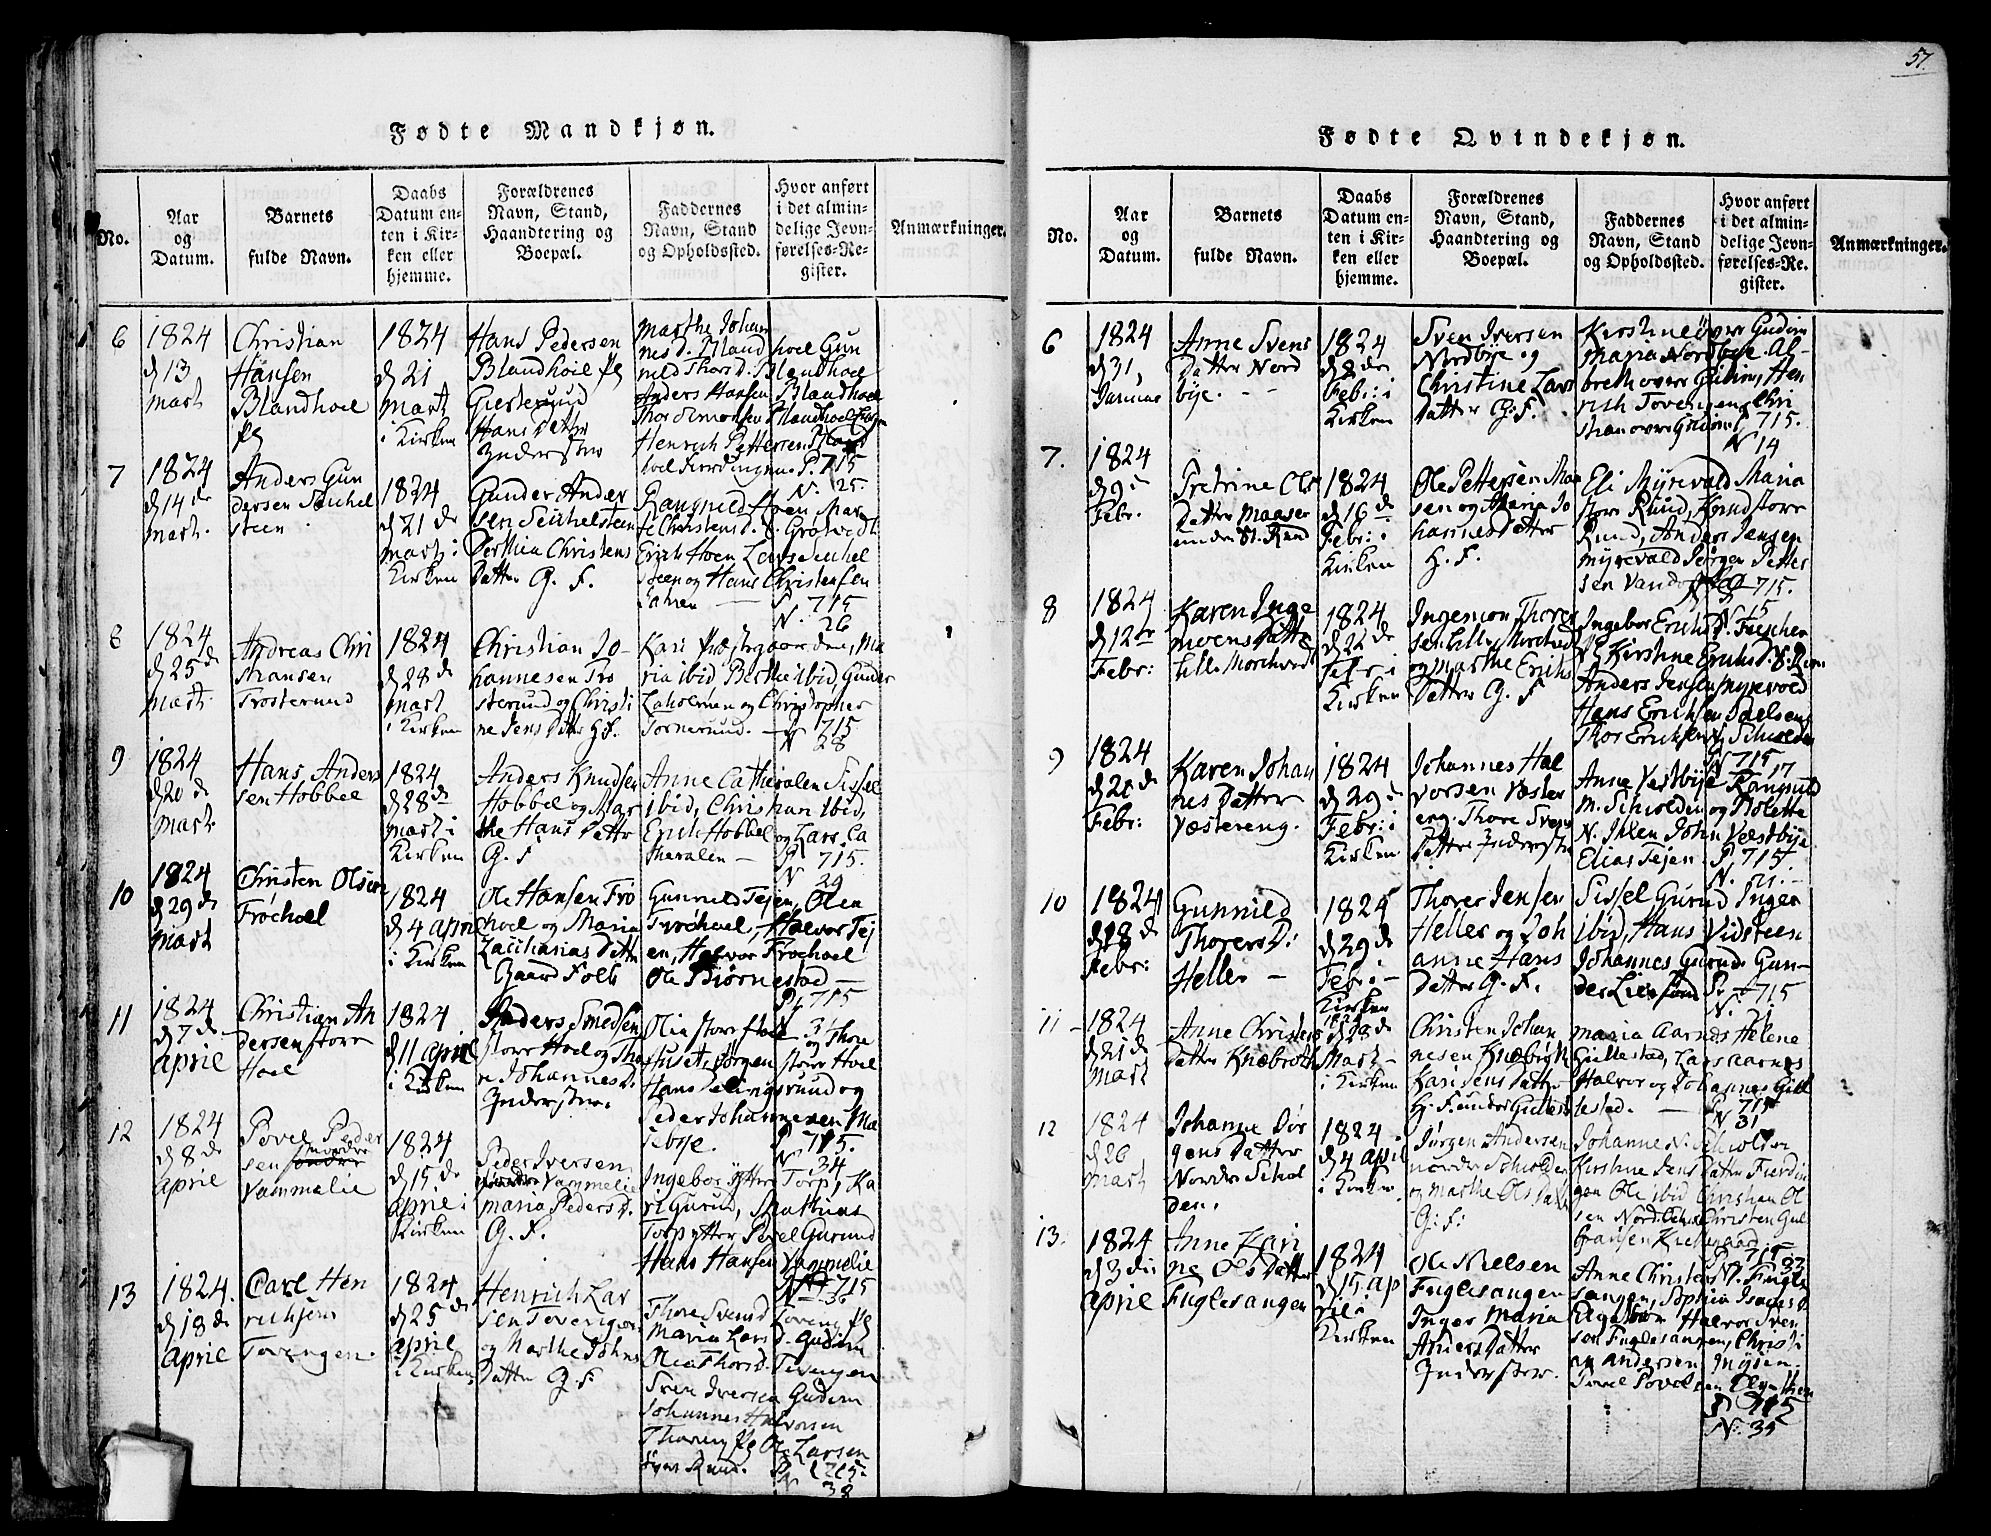 57.
Fødte Mandkjøn.
No.
Aar
og
Datum.
Barnets
fulde Navn.
Daabs
Datum en-
ten i Kir-
ken eller
hjemme.
Forældrenes
Navn, Stand,
Haandtering og
Boepæl.
Faddernes
Navn, Stand
og Opholdssted.
Hvor anført
i det almin-
delige Jevn-
førelses-Re-
gister.
Anmærkninger.
6
1824
d 13
Mart
Christian
Hansen
Blandhoel
1824
d 21
Mart
i Kirken
Hans Pedersen
Blandhoel
Hans Datter
Inderster
Marthe Johan
nes d. Bland hoel Gun
nild Thors d. Blandhoel
Anders Hansen Blandhoel
Thor Simonsen Blandhoel
Henrich Pettersen
P. 715
N. 25.
7
1824
d 14 de
Mart.
Anders Gun
dersen
steen
1824
d 21 de
Mart i
Kirken
Gunder Ander
sen
Christens
Datter G. F.
Rangnild Hoen Mar
te Christens d.
Erich Hoen Lars
steen og Hans Christensen
P. 715
N. 26
8
1824
d 25 de
Mart.
Andreas Chri
stiansen
Trosterud
1824
d 28 de
Mart
i Kirken
Christian Jo-
hannesen Tro
sterund og Christi
ne Jens Datter G F.
Kari Præstegaardene, Ma
ria ibid Berthe ibid, Gunder
og Christopher
Tornerund.
P. 715
N 28
9
1824
d 20 de
Mart
Hans Anders
sen Hobbel
1824
d 28 de
Mart i
Kirken
Anders Knudsen
Hobbel og Mar
the Hans Datter
G. F
Anne Catheralen Sissel
ibid, Christian ibid,
Erich Hobbel og Lars Ca
theralen
P. 715.
N 29
10
1824
d 29 de
Mart
Christen Olsen
Fröchoel
1824
d 4 April
i Kirken
Ole Hansen Frö
choel og Maria
Zacharias Datter
Gaard Folk
Gunnild Tejen, Olea
Fröchoel, Halvor Tej
en, Halvor Frochoel
Ole Biørnestad
P. 715
11
1824
d 7 de
April
Christian An
dersen storr
Hoel
1824
d 11 April
i Kirken
Anders Smedsen
storr Hoel og Tho
re Johannes D.
Inderster.
Olia storr Hoel og Thore
Huset, Jørgen storr Hoel
Hans og
Peder Johannesen Ma
sebye.
P 715.
N 34
12
1824
d 8 de
April
Povel Peder
sen nordre
Vammelie
1824
d 15 de
April i
Kirken
Peder Iversen
Vammelie
Maria Peders D.
G. F.
Ingebor ytter Torp, Ka
ri Gurud, Mathias
Torp ytter Povel Gurund
Hans Hansen Vammelie
P 715
N 36
13
1824.
d 18 de
April
Carl Hen
richsen
Tovengen.
1824
d 25 de
April
i Kirken
Henrich Lar
sen Tovengen
og Marthe Johns
Datter G. F
Thore Svens d Toveng
Maria Lars d. Gudim
Olia Thors d. Tovengen
Sven Iversen Gudim
Johannes Halvorsen
Ole Larsen
P. 715.
N 38
Fødte Qvindekjøn.
No.
Aar
og
Datum.
Barnets
fulde Navn.
Daabs
Datum en-
ten i Kir-
ken eller
hjemme.
Forældrenes
Navn, Stand,
Haandtering og
Boepæl.
Faddernes
Navn, Stand
og Opholdssted.
Hvor anført
i det almin-
delige Jevn-
førelses-Re-
gister.
Anmærkninger.
6
1824
d 31,
Januar
Anne Svens
Datter Nord
bye.
1824
d 8 de
Febr: i
Kirken
Sven Iversen
Nordbye og
Christine Lars
Datter G. F.
Kirstine øvre Gudim
Maria Nordbye Al-
breth øvre Gudim, Hen
rich Tovengen, Chri
stian øvre Gudim P 715.
N 14
7.
1824
d 9
Febr.
Petrine Ols
Datter Maaser
under St. Rund
1824
d 16 de
Febr: i
Kirken
Ole Pettersen
sen og Maria Jo
hannes Datter
H. F.
Eli Myrevald Maria
store Rund, Knud storr
Rund, Anders Jensen
Myrevald Jørgen Petter
sen P. 715.
N 15
8
1824
d 12 te
Febr:
Karen Inge
moens Datter
Lille Morchved
1824
d 22 de
Febr: i
Kirken
Ingemon Thorer
sen Lille Morchved
og Marthe Erichs
Datter G. F
Ingebor Erichs D.
Kirstine Erichs D.
Anders Jensen Myrevold
Hans Erichsen
Thor Erichsen N. Schiolden
P 715
N 17
9
1824
d 20 de
Febr:
Karen Johan
nes Datter
Væstereng.
1824
d 29 de
Febr: i
Kirken
Johannes Hal
vorsen Væster
eng. Thore Svens
Datter Inderster
Anne Vestbye Rangnild
N. Schiolden og Nolette
N. John Væstbye
Elias Tejen. P. 715
N. 21.
10
1824
d 18 de
Febr:
Gunnild
Thorers D:
Heller
1824
d 29 de
Febr: i
Kirken
Thorer Jensen
Heller og Joh
anne Hans
Datter G. F.
Sissel Gurud Inger
ibid, Hans Vidsteen
Johannes Gurud Gun-
der P. 715
N. 21
11
1824
d 21 de
Mart
Anne Christens
Datter Knæbroch
1824
d 28 de
Mart
i Kirken
Christen Johan
nesen Knæbroch
Kari Jens Datter
H. F. under Gillest
Maria Aarnes Helene
Gillestad, Lars Aarnes
Halvor og Johannes Gil
lestad. P 715
N 31
12
1824
d 26
Mart
Johanne Jør
gens Datter
Nordre Schiol
den.
1824
d 4 April
i Kirken
Jørgen Andersen
nordre Schiolden
og Marthe Ols Datter
G: F:
Johanne N. Schiolden
Kirstine Jens Datter Fierdin
gen Ole ibid Christian Ol
sen Nord. Christen Gul
bransen Kirkegaard
P. 715
N. 33
13.
1824
d 3 die
April
Anne Kari
ne Ols Datter
Fuglesangen
1824
d 15 Ap
ril i
Kirken
Ole Nielsen
Fuglesangen
Inger Maria
Anders Datter
Inderster.
Anne Christens D. Fugle
sangen, Sophia Isachs d
Halvor Sven
sen Fuglesangen, Christi
an Andersen Mysen
Povel Povelsen
P 715
N. 35